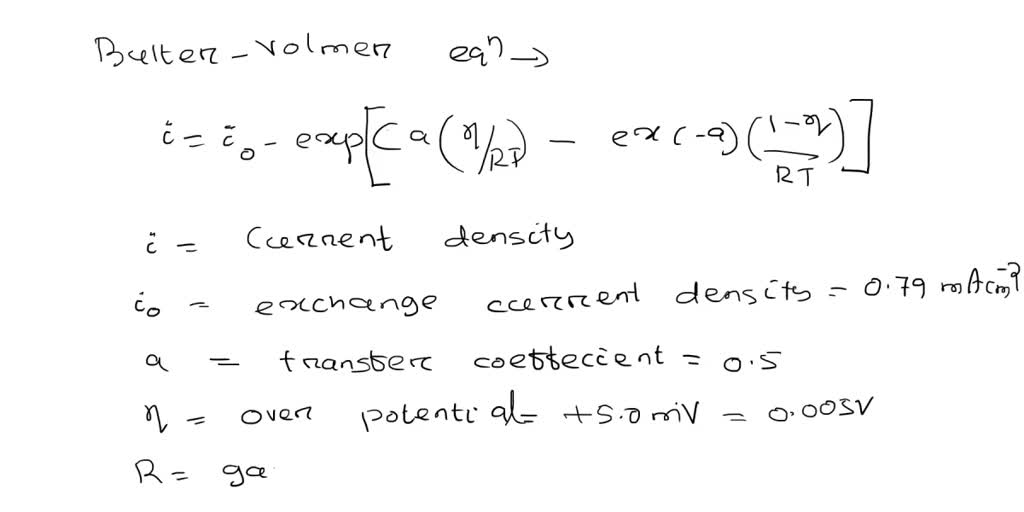 Bulter - Volmer eqⁿ →
i = i₀ - exp[C a(η/RT) - ex(-a)(1-η/RT)]
i = Current density
i₀ = exchange current density = 0.79 mAcm⁻²
a = transfer coeffecient = 0.5
η = over potential = +5.0 mV = 0.005V
R = ga